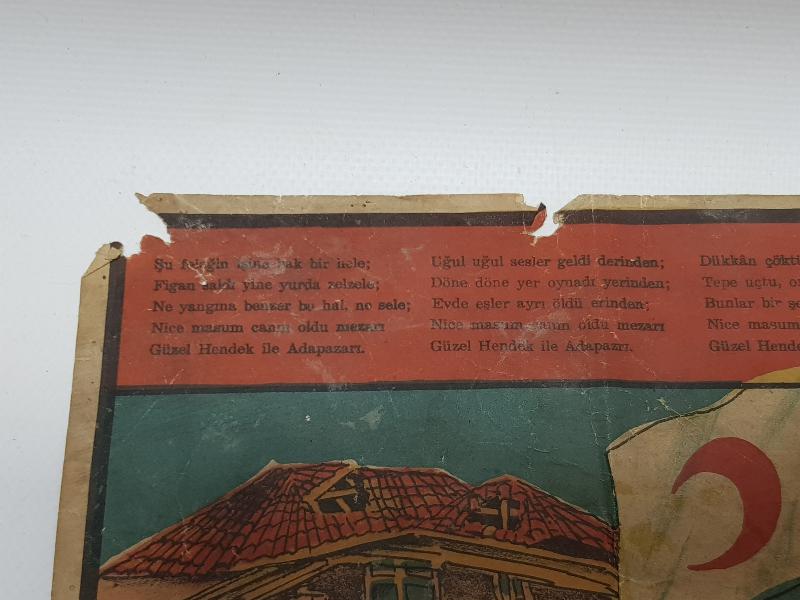 Şu feleğin işine bak bir hele;
Figan saldı yine yurda zelzele;
Ne yangına benzer bu hal, ne sele;
Nice masum canın oldu mezarı
Güzel Hendek ile Adapazarı.
Uğul uğul sesler geldi derinden;
Döne döne yer oynadı yerinden;
Evde eşler ayrı öldü erinden;
Nice masum canın oldu mezarı
Güzel Hendek ile Adapazrı.
Dükkân çökti
Tepe uçtu, o
Bunlar bir şe
Nice masum
Güzel Hende